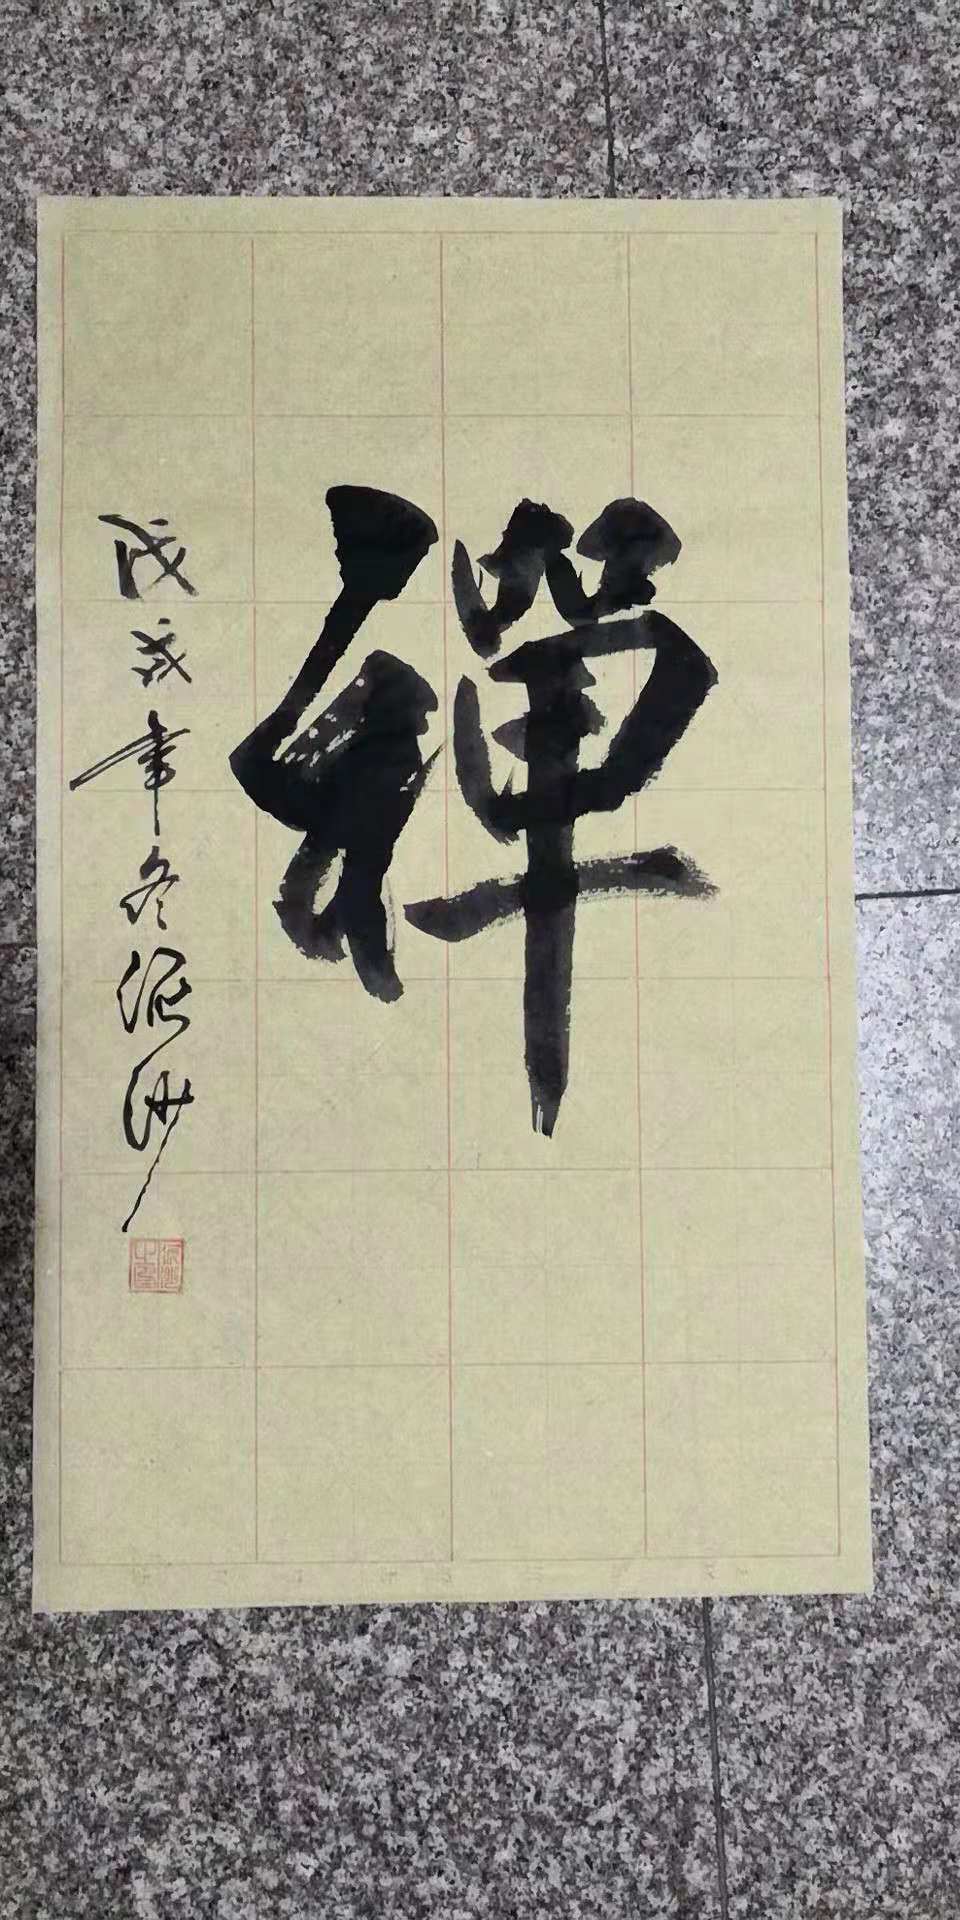 禪
戊戌年冬